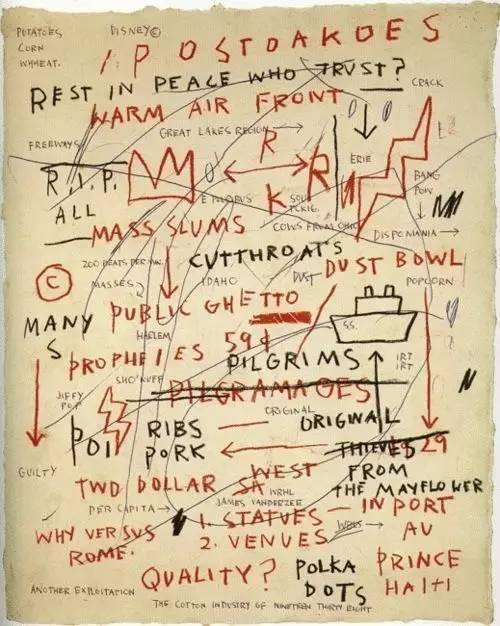 POTATOES DISNEY©
CORN
WHHEAT.
I P O S T O A K O E S
REST IN PEACE WHO TRVST?
CRACK
WARM AIR FRONT
GREAT LAKES REGION→
FREEWAYS
R
R.I.P. R ERIE
BANG
POW
ALL K
MASS SLUMS COWS FROM OHIO
DISPOMANIA →
CUTTHROAT'S
200 BEATS PER MN. DUST BOWL
© MASSES IDAHO DUST POPCORN
PUBLIC GHETTO
MANY
S HARLEM 59¢ SS.
PROPHEIES PILGRIMS IRT
IRT
SHO'NUFF
PILGRAMAGES
JIFFY
POP ORIGINAL
POI RIBS — ORIGINAL
PORK THIEVES 29
GUILTY WEST FROM
TWO DOLLAR SA THE MAYFLOWER
WRHL
PER CAPITA→ JAMES VANDERZEE
1. STATVES — IN PORT
WHY VERSVS 2. VENUES → AU
ROME.
QUALITY? POLKA PRINCE
DOTS HAITI
ANOTHER EXPLOITATION
THE COTTON INDUSTRY OF NINETEEN THIRTY EIGHT